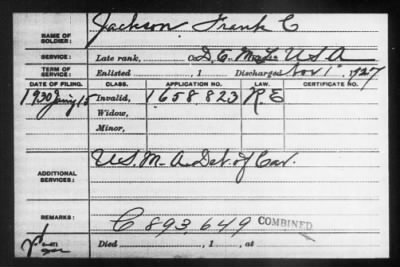 NAME OF SOLDIER: Jackson Frank C
SERVICE: Late rank, D.E.M.L. U.S.A
TERM OF SERVICE: Enlisted , 1 Discharged Nov 1", 1927
DATE OF FILING. CLASS. APPLICATION NO. LAW. CERTIFICATE NO.
1930 Invalid, 1658823 R.E
Widow,
Minor,
ADDITIONAL SERVICES: U.S.M.A. Det. of Cav.
REMARKS: C 893,649 COMBINED
Died , 1 , at